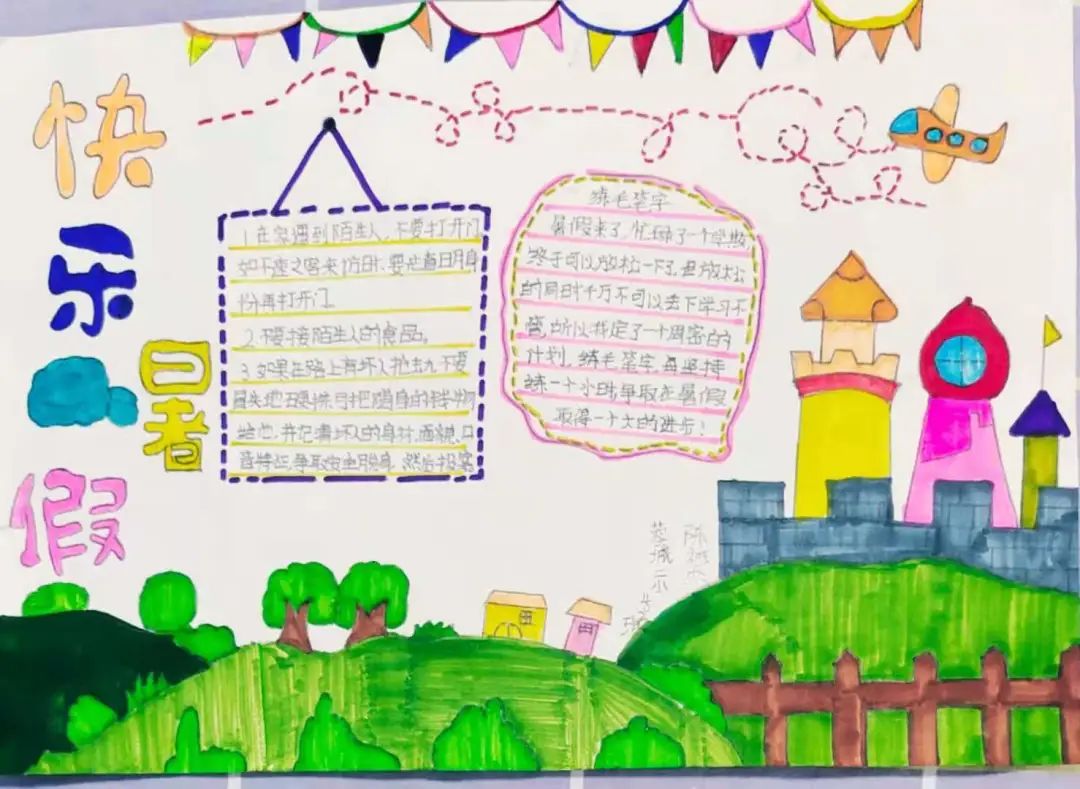 快
乐
暑
假
1.在家遇到陌生人,不要打开门,
如不速之客来访时,要先查明身
份再打开门。
2.不要接陌生人的食品。
3.如果在路上有坏人抢劫不要
冒失地硬拼,可把随身的钱物
给他,并记清坏人的身材、面貌、口
音特征,争取安全脱身,然后报案
练毛笔字
暑假来了,忙碌了一个学期,
终于可以放松一下了,但放松
的同时千万不可以丢下学习不
管,所以我定了一个周密的
计划,练毛笔字,每坚持
练一个小时,争取在暑假
取得一个大的进步!
陈
蓉城示